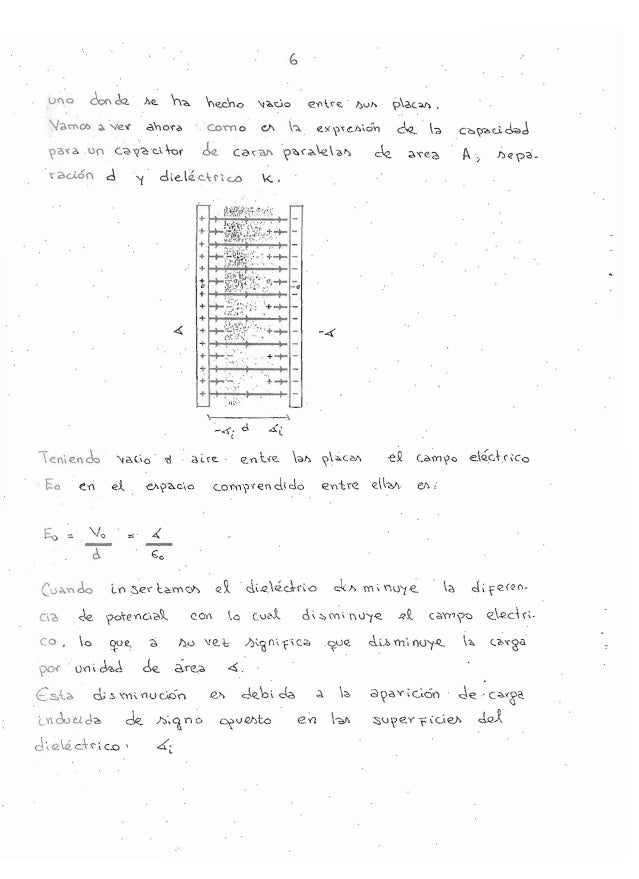 6
uno donde se ha hecho vacio entre sus placas.
Vamos a ver ahora como es la expresión de la capacidad
para un capacitor de caras paralelas de area A, sepa-
ración d y dieléctrico K.
σ -σ
-σi d σi
Teniendo vacio o aire entre las placas el campo eléctrico
Eo en el espacio comprendido entre ellas es:
Eo = Vo/d = σ/ϵo
Cuando insertamos el dieléctrio disminuye la diferen-
cia de potencial con lo cual disminuye el campo electri-
co, lo que a su vez significa que disminuye la carga
por unidad de área σ.
Esta disminución es debida a la aparición de carga
inducida de signo opuesto en las superficies del
dieléctrico, σi